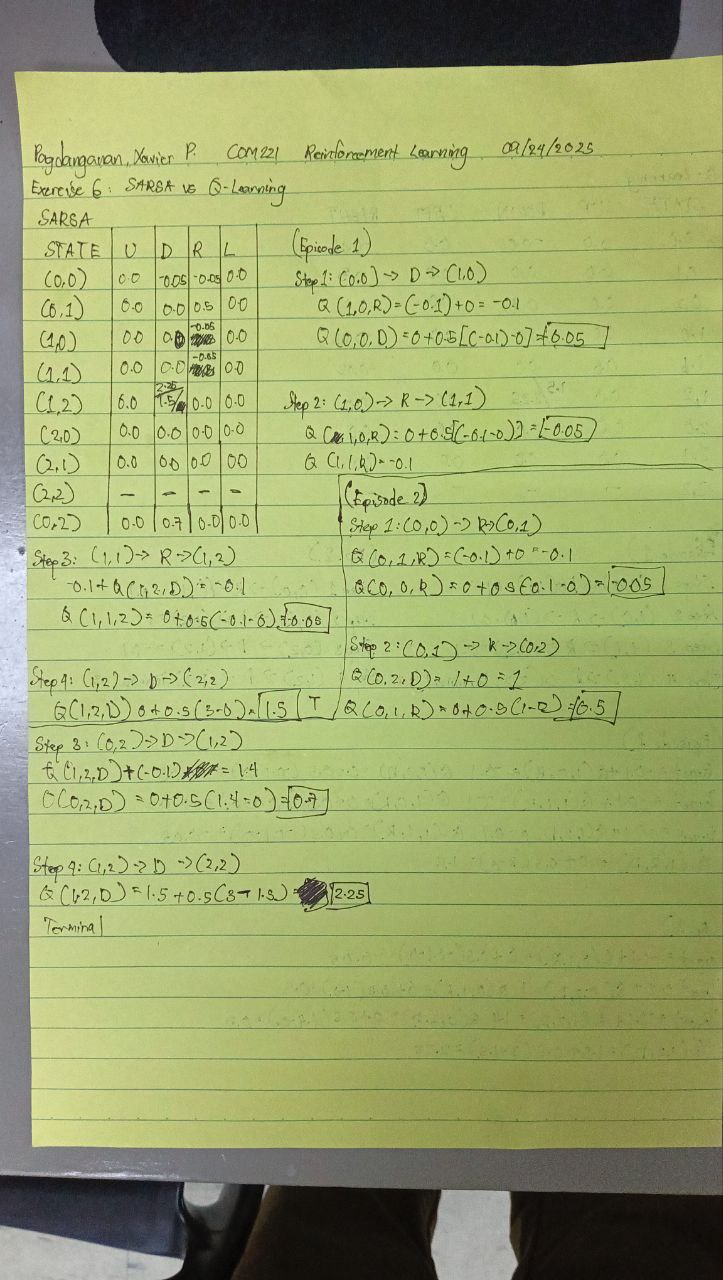 Pagdanganan, Xavier P. COM221 Reinforcement Learning 09/24/2025
Exercise 6: SARSA vs Q-Learning
SARSA
STATE U D R L
(0,0) 0.0 -0.05 -0.05 0.0
(0,1) 0.0 0.0 0.5 0.0
(1,0) 0.0 0.0 -0.05 0.0
(1,1) 0.0 0.0 -0.05 0.0
(1,2) 0.0 2.25 1.5 0.0 0.0
(2,0) 0.0 0.0 0.0 0.0
(2,1) 0.0 0.0 0.0 00
(2,2) - - - -
(0,2) 0.0 0.7 0.0 0.0
(Episode 1)
Step 1: (0,0) -> D -> (1,0)
Q (1,0,R) = (-0.1) + 0 = -0.1
Q (0,0,D) = 0+0.5[(-0.1)-0] = -0.05
Step 2: (1,0) -> R -> (1,1)
Q (1,0,R) = 0+0.5[(-0.1-0)] = -0.05
Q (1,1,R) = -0.1
Step 3: (1,1) -> R -> (1,2)
-0.1 + Q(1,2,D) = -0.1
Q (1,1,2) = 0+0.5(-0.1-0) = -0.05
Step 4: (1,2) -> D -> (2,2)
Q(1,2,D) 0+0.5(3-0) = 1.5 T
(Episode 2)
Step 1: (0,0) -> R -> (0,1)
Q (0,1,R) = (-0.1) + 0 = -0.1
Q(0,0,R) = 0+0.5(-0.1-0) = -0.05
Step 2: (0,1) -> R -> (0,2)
Q (0,2,D) = 1+0 = 1
Q (0,1,R) = 0+0.5(1-0) = 0.5
Step 3: (0,2) -> D -> (1,2)
Q (1,2,D) + (-0.1) = 1.4
Q(0,2,D) = 0+0.5(1.4-0) = 0.7
Step 4: (1,2) -> D -> (2,2)
Q (1,2,D) = 1.5 + 0.5(3-1.5) = 2.25
Terminal